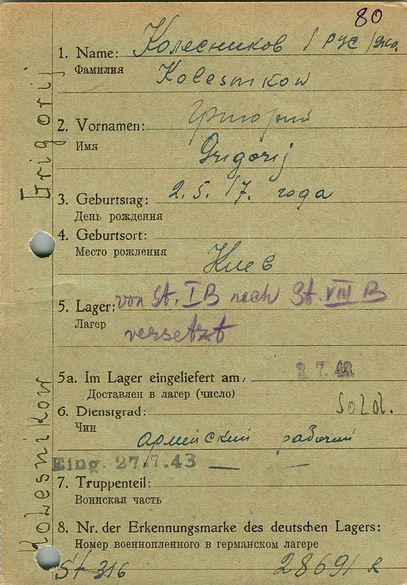 80
1. Name: Колесников / рус /
Фамилия Kolesnikow
2. Vornamen: Григорий
Имя Grigorij
3. Geburtstag: 2.5.17. года
День рождения
4. Geburtsort:
Место рождения Киев
5. Lager: von St. IB nach St. VIII B
Лагер versetzt
5a. Im Lager eingeliefert am: 7. 42
Доставлен в лагер (число)
6. Dienstgrad: Sold.
Чин армейский рабочий
Eing. 27.7.43
7. Truppenteil:
Воинская часть
8. Nr. der Erkennungsmarke des deutschen Lagers:
Номер военнопленного в германском лагере
St 316 2869/
Kolesnikow Grigorij